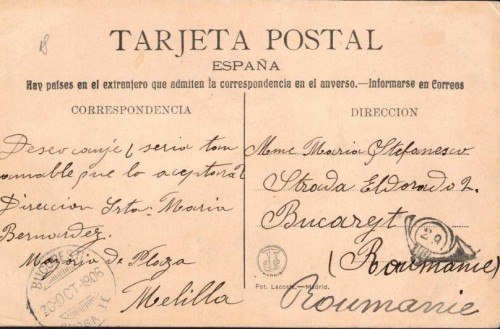 TARJETA POSTAL
ESPAÑA
Hay países en el extranjero que admiten la correspondencia en el anverso.—Informarse en Correos
CORRESPONDENCIA
Deseo canje ¿seria tan
amable que lo aceptora?
Direccion Srta. Maria
Bernardez.
Mayoria de Plaza
Melilla
BUCUREST
20 OCT 1906
DIRECCION
Mme Maria Stefanesco
Strada Eldorado 2.
Bucarest
(Roumanie)
Roumanie
Fot. Lacoste.-Madrid.